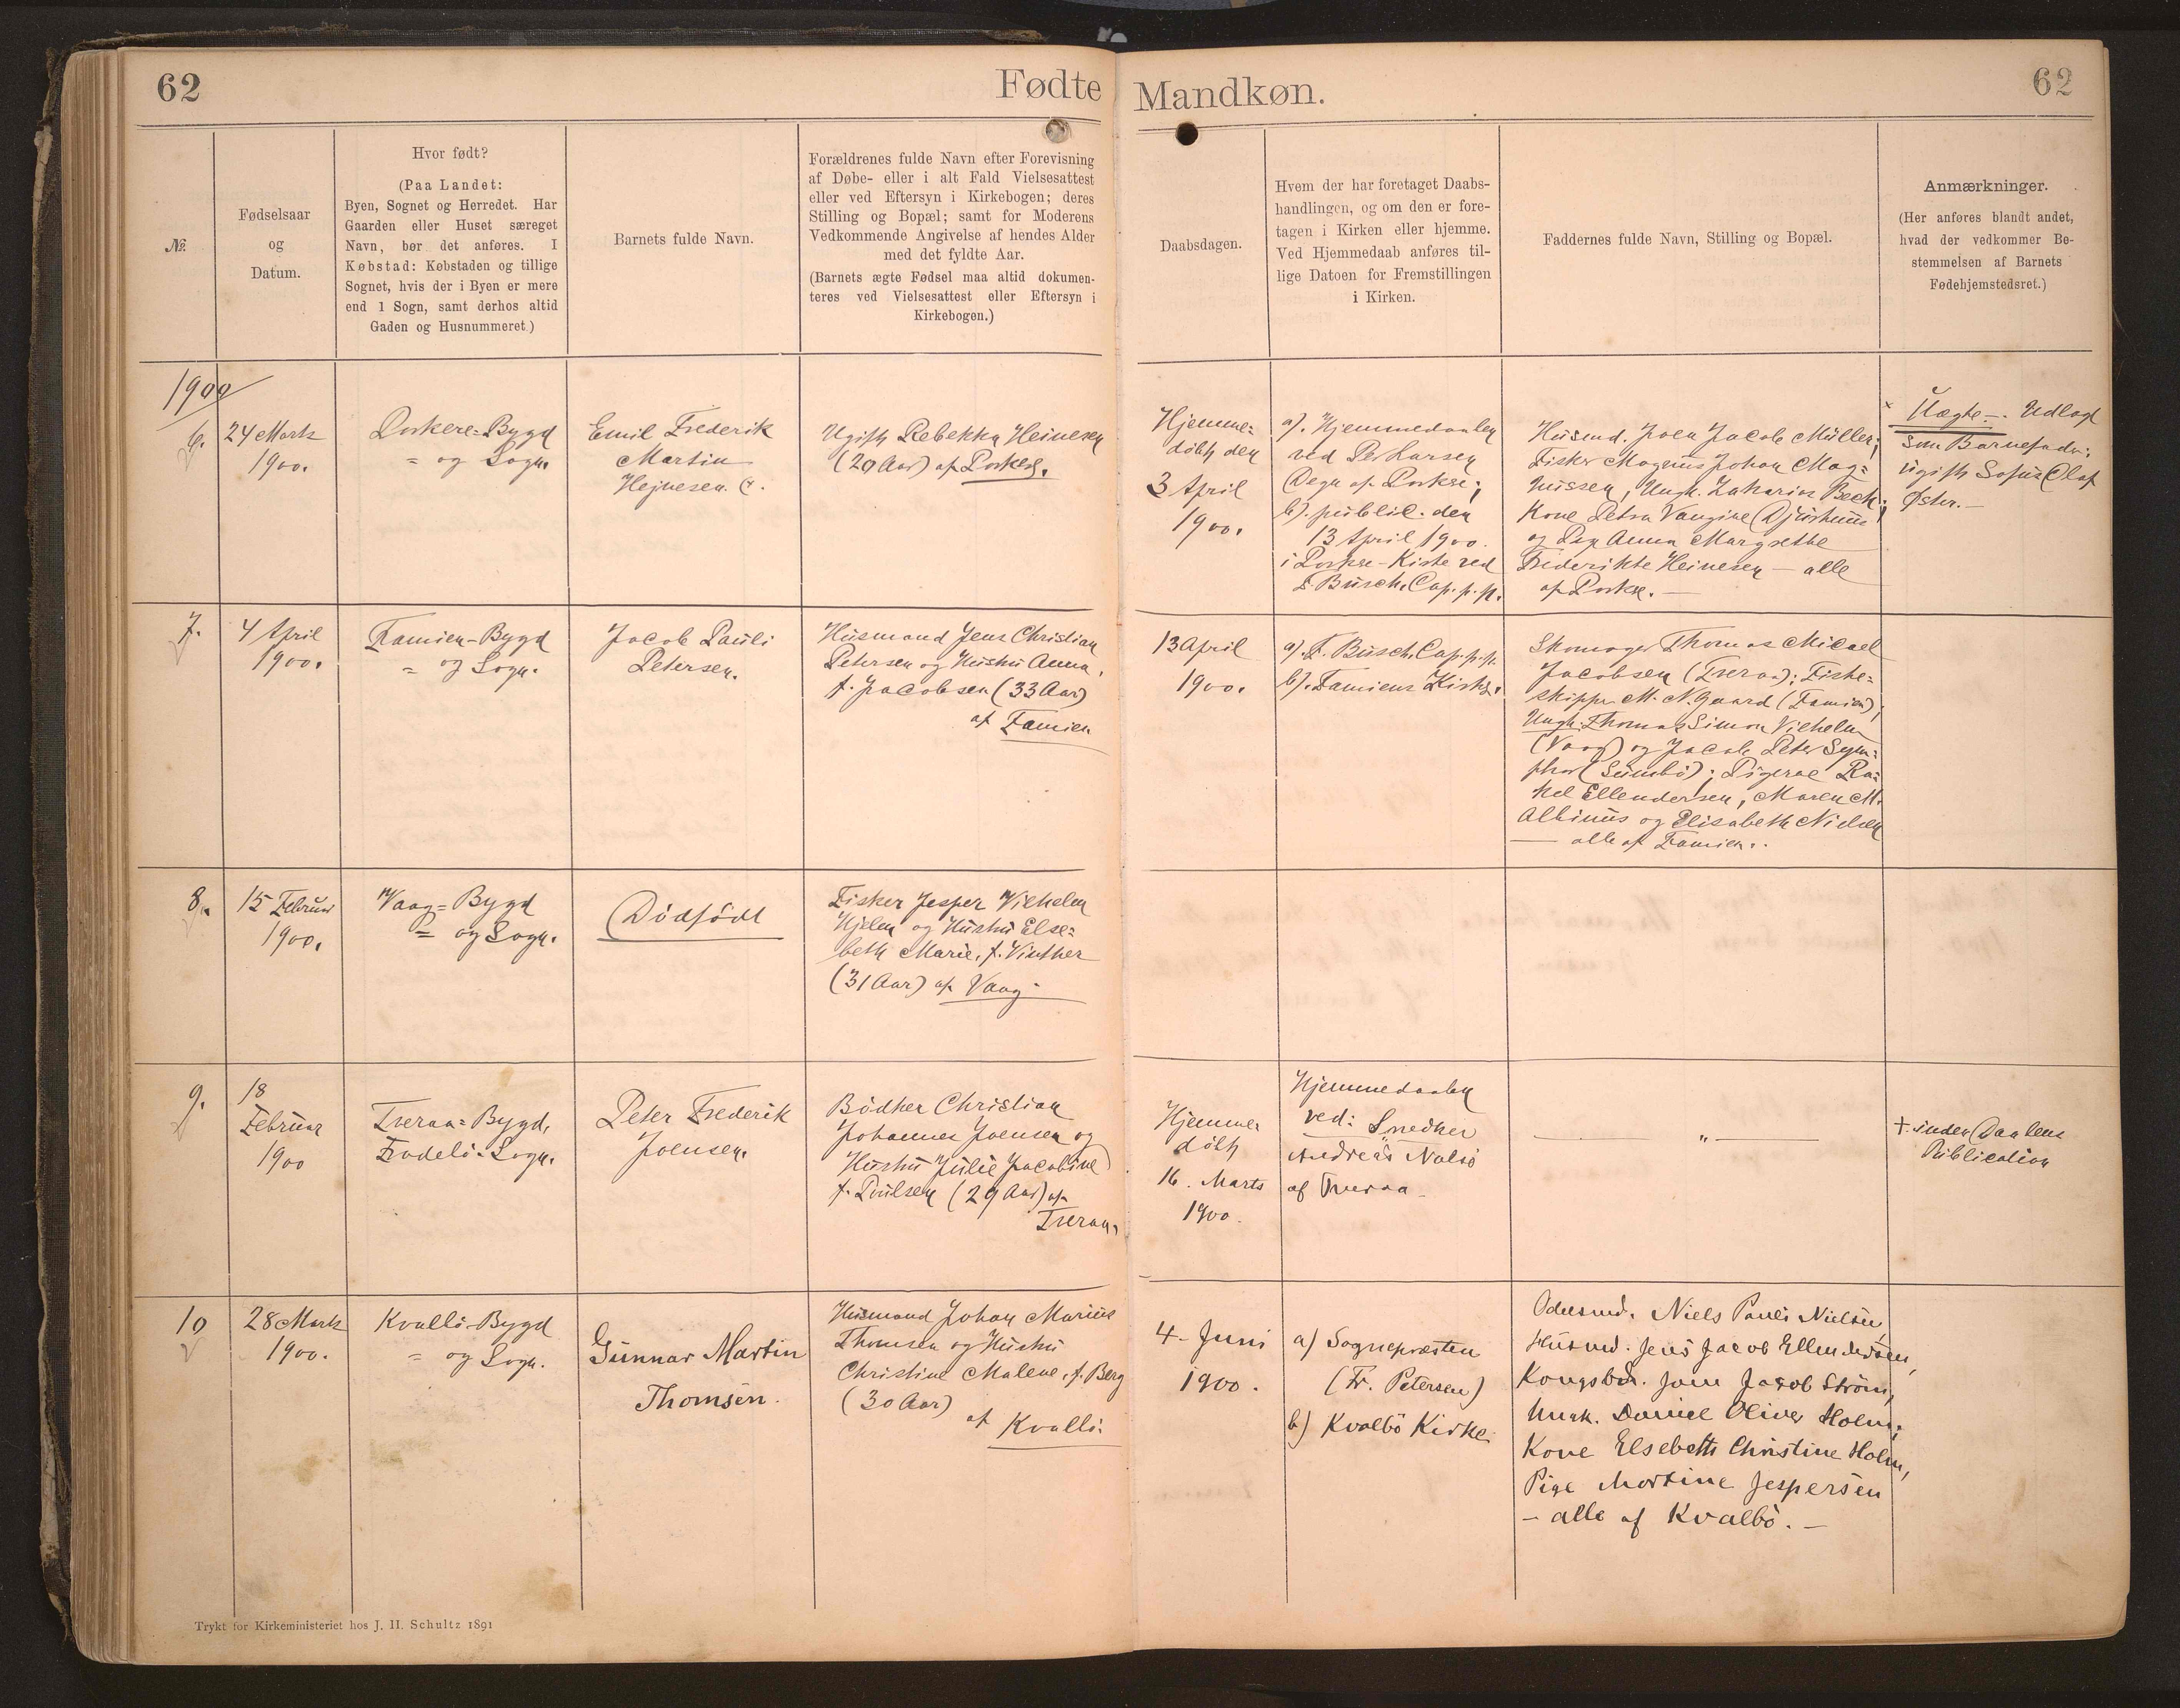 62
Fødte
Mandkøn.
62
№.
Fødselsaar
og
Datum.
Hvor født?
(Paa Landet:
Byen, Sognet og Herredet. Har
Gaarden eller Huset særeget
Navn, bør det anføres. I
Købstad: Købstaden og tillige
Sognet, hvis der i Byen er mere
end 1 Sogn, samt derhos altid
Gaden og Husnummeret.)
Barnets fulde Navn.
Forældrenes fulde Navn efter Forevisning
af Døbe- eller i alt Fald Vielsesattest
eller ved Eftersyn i Kirkebogen; deres
Stilling og Bopæl; samt for Moderens
Vedkommende Angivelse af hendes Alder
med det fyldte Aar.
(Barnets ægte Fødsel maa altid dokumen-
teres ved Vielsesattest eller Eftersyn i
Kirkebogen.)
Daabsdagen.
Hvem der har foretaget Daabs-
handlingen, og om den er fore-
tagen i Kirken eller hjemme.
Ved Hjemmedaab anføres til-
lige Datoen for Fremstillingen
i Kirken.
Faddernes fulde Navn, Stilling og Bopæl.
Anmærkninger.
(Her anføres blandt andet,
hvad der vedkommer Be-
stemmelsen af Barnets
Fødehjemstedsret.)
1900
6.
24 Marts
1900.
Porkere=Bygd
= og Sogn.
Emil Frederik
Martin
Hejnesen.
Ugift Rebekka Heinesen
(20 Aar) af Porkere.
Hjemme-
döbt den
3 April
1900.
a). Hjemmedaaben
ved Per Larsen
Degn af Porkere;
b). public. den
13 April 1900.
i Porkere-Kirke ved
F. Busch, Cap. p. p.
Husmd. Joen Jacob Müller;
Fisker Magnus Johan Mag=
nussen, Ungk. Zakarias Bech;
Kone Petra Vangine Djurhuus
og Pige Anna Margrethe
Frederikke Heinesen – alle
af Porkere. –
× Uægte –. Udlagt
som Barnefader:
ugift Sofus Olaf
Øster. –
7.
4 April
1900.
Famien-Bygd
= og Sogn.
Jacob Pauli
Petersen.
Husmand Jens Christian
Petersen og Hustru Anna,
f. Jacobsen (33 Aar)
af Famien
13 April
1900.
a). F. Busch, Cap. p. p.
b). Famiens Kirke.
Skomager Thomas Micael
Jacobsen (Tveraa); Fiske=
skipper M. N. Gaard (Famien),
Ungk. Thomas Simon Vilhelm
(Vaag) og Jacob Peter Sym=
phor (Sumbö); Pigerne Ra=
kel Ellendersen, Maren M.
Albinus og Elisabeth Nielsen
– alle af Famien.
8.
15 Februar
1900.
Vaag=Bygd
= og Sogn.
Dödfödt
Fisker Jesper Vilhelm
Hjelm og Hustru Else=
beth Marie, f. Vinther
(31 Aar) af Vaag
9.
18
Februar
1900
Tveraa=Bygd,
Frodebö-Sogn.
Peter Frederik
Joensen.
Bödker Christian
Johannes Joensen og
Hustru Julie Jacobine
f. Poulsen (29 Aar) af
Tveraa.
Hjemme-
döbt
16. Marts
1900.
Hjemmedaaben
ved: Snedker
Andreas Nolsö
af Tveraa.
— „ —
† inden Daabens
Publication
10
28 Marts
1900.
Kvalbö-Bygd
= og Sogn.
Gunnar Martin
Thomsen.
Husmand Johan Marius
Thomsen og Hustru
Christine Malene, f. Berg
(30 Aar)
af Kvalbö.
4. Juni
1900.
a) Sognepræsten
(Fr. Petersen)
b) Kvalbö Kirke.
Odelsmd. Niels Pauli Nielsen,
Husmd. Jens Jacob Ellendersen,
Kongsbd. Joen Jacob Ström,
Ungk. Daniel Oliver Holm;
Kone Elsebeth Christine Holm,
Pige Martine Jespersen
– alle af Kvalbö. –
Trykt for Kirkeministeriet hos J. H. Schultz 1891